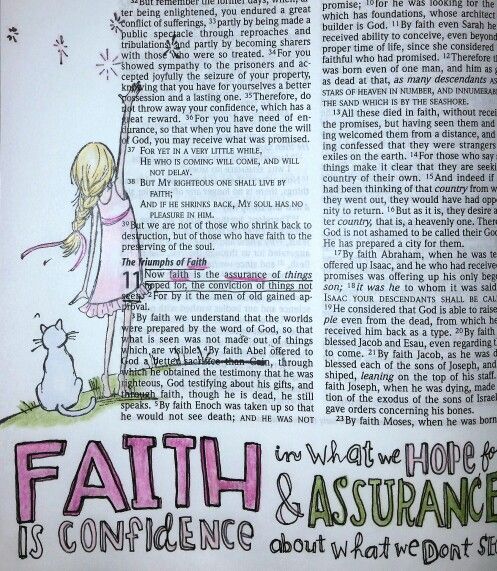 32 But remember the former days, when, af-
ter being enlightened, you endured a great
conflict of sufferings, 33 partly by being made a
public spectacle through reproaches and
tribulations, and partly by becoming sharers
with those who were so treated. 34 For you
showed sympathy to the prisoners and ac-
cepted joyfully the seizure of your property,
knowing that you have for yourselves a better
possession and a lasting one. 35 Therefore, do
not throw away your confidence, which has a
great reward. 36 For you have need of en-
durance, so that when you have done the will
of God, you may receive what was promised.
37 FOR YET IN A VERY LITTLE WHILE,
HE WHO IS COMING WILL COME, AND WILL
NOT DELAY.
38 BUT MY RIGHTEOUS ONE SHALL LIVE BY
FAITH;
AND IF HE SHRINKS BACK, MY SOUL HAS NO
PLEASURE IN HIM.
39 But we are not of those who shrink back to
destruction, but of those who have faith to the
preserving of the soul.
The Triumphs of Faith
11 Now faith is the assurance of things
hoped for, the conviction of things not
seen. 2 For by it the men of old gained ap-
proval.
3 By faith we understand that the worlds
were prepared by the word of God, so that
what is seen was not made out of things
which are visible. 4 By faith Abel offered to
God a better sacrifice than Cain, through
which he obtained the testimony that he was
righteous, God testifying about his gifts, and
through faith, though he is dead, he still
speaks. 5 By faith Enoch was taken up so that
he would not see death; AND HE WAS NOT
promise; 10 for he was looking for the
which has foundations, whose architec
builder is God. 11 By faith even Sarah he
received ability to conceive, even beyond
proper time of life, since she considered
faithful who had promised. 12 Therefore t
was born even of one man, and him as g
as dead at that, as many descendants AS
STARS OF HEAVEN IN NUMBER, AND INNUMERABL
THE SAND WHICH IS BY THE SEASHORE.
13 All these died in faith, without recei
the promises, but having seen them and
ing welcomed them from a distance, and
ing confessed that they were strangers
exiles on the earth. 14 For those who say
things make it clear that they are seeki
country of their own. 15 And indeed if
had been thinking of that country from w
they went out, they would have had opp
nity to return. 16 But as it is, they desire a
ter country, that is, a heavenly one. There
God is not ashamed to be called their God
He has prepared a city for them.
17 By faith Abraham, when he was te
offered up Isaac, and he who had received
promises was offering up his only beg
son; 18 it was he to whom it was said
ISAAC YOUR DESCENDANTS SHALL BE CAL
19 He considered that God is able to raise
ple even from the dead, from which he
received him back as a type. 20 By faith
blessed Jacob and Esau, even regarding t
to come. 21 By faith Jacob, as he was d
blessed each of the sons of Joseph, and
shiped, leaning on the top of his staff.
faith Joseph, when he was dying, made
tion of the exodus of the sons of Israel
gave orders concerning his bones.
23 By faith Moses, when he was born,
FAITH in what we HOPE fo
& ASSURANCE
IS CONFIDENCE about what we DONT SEE